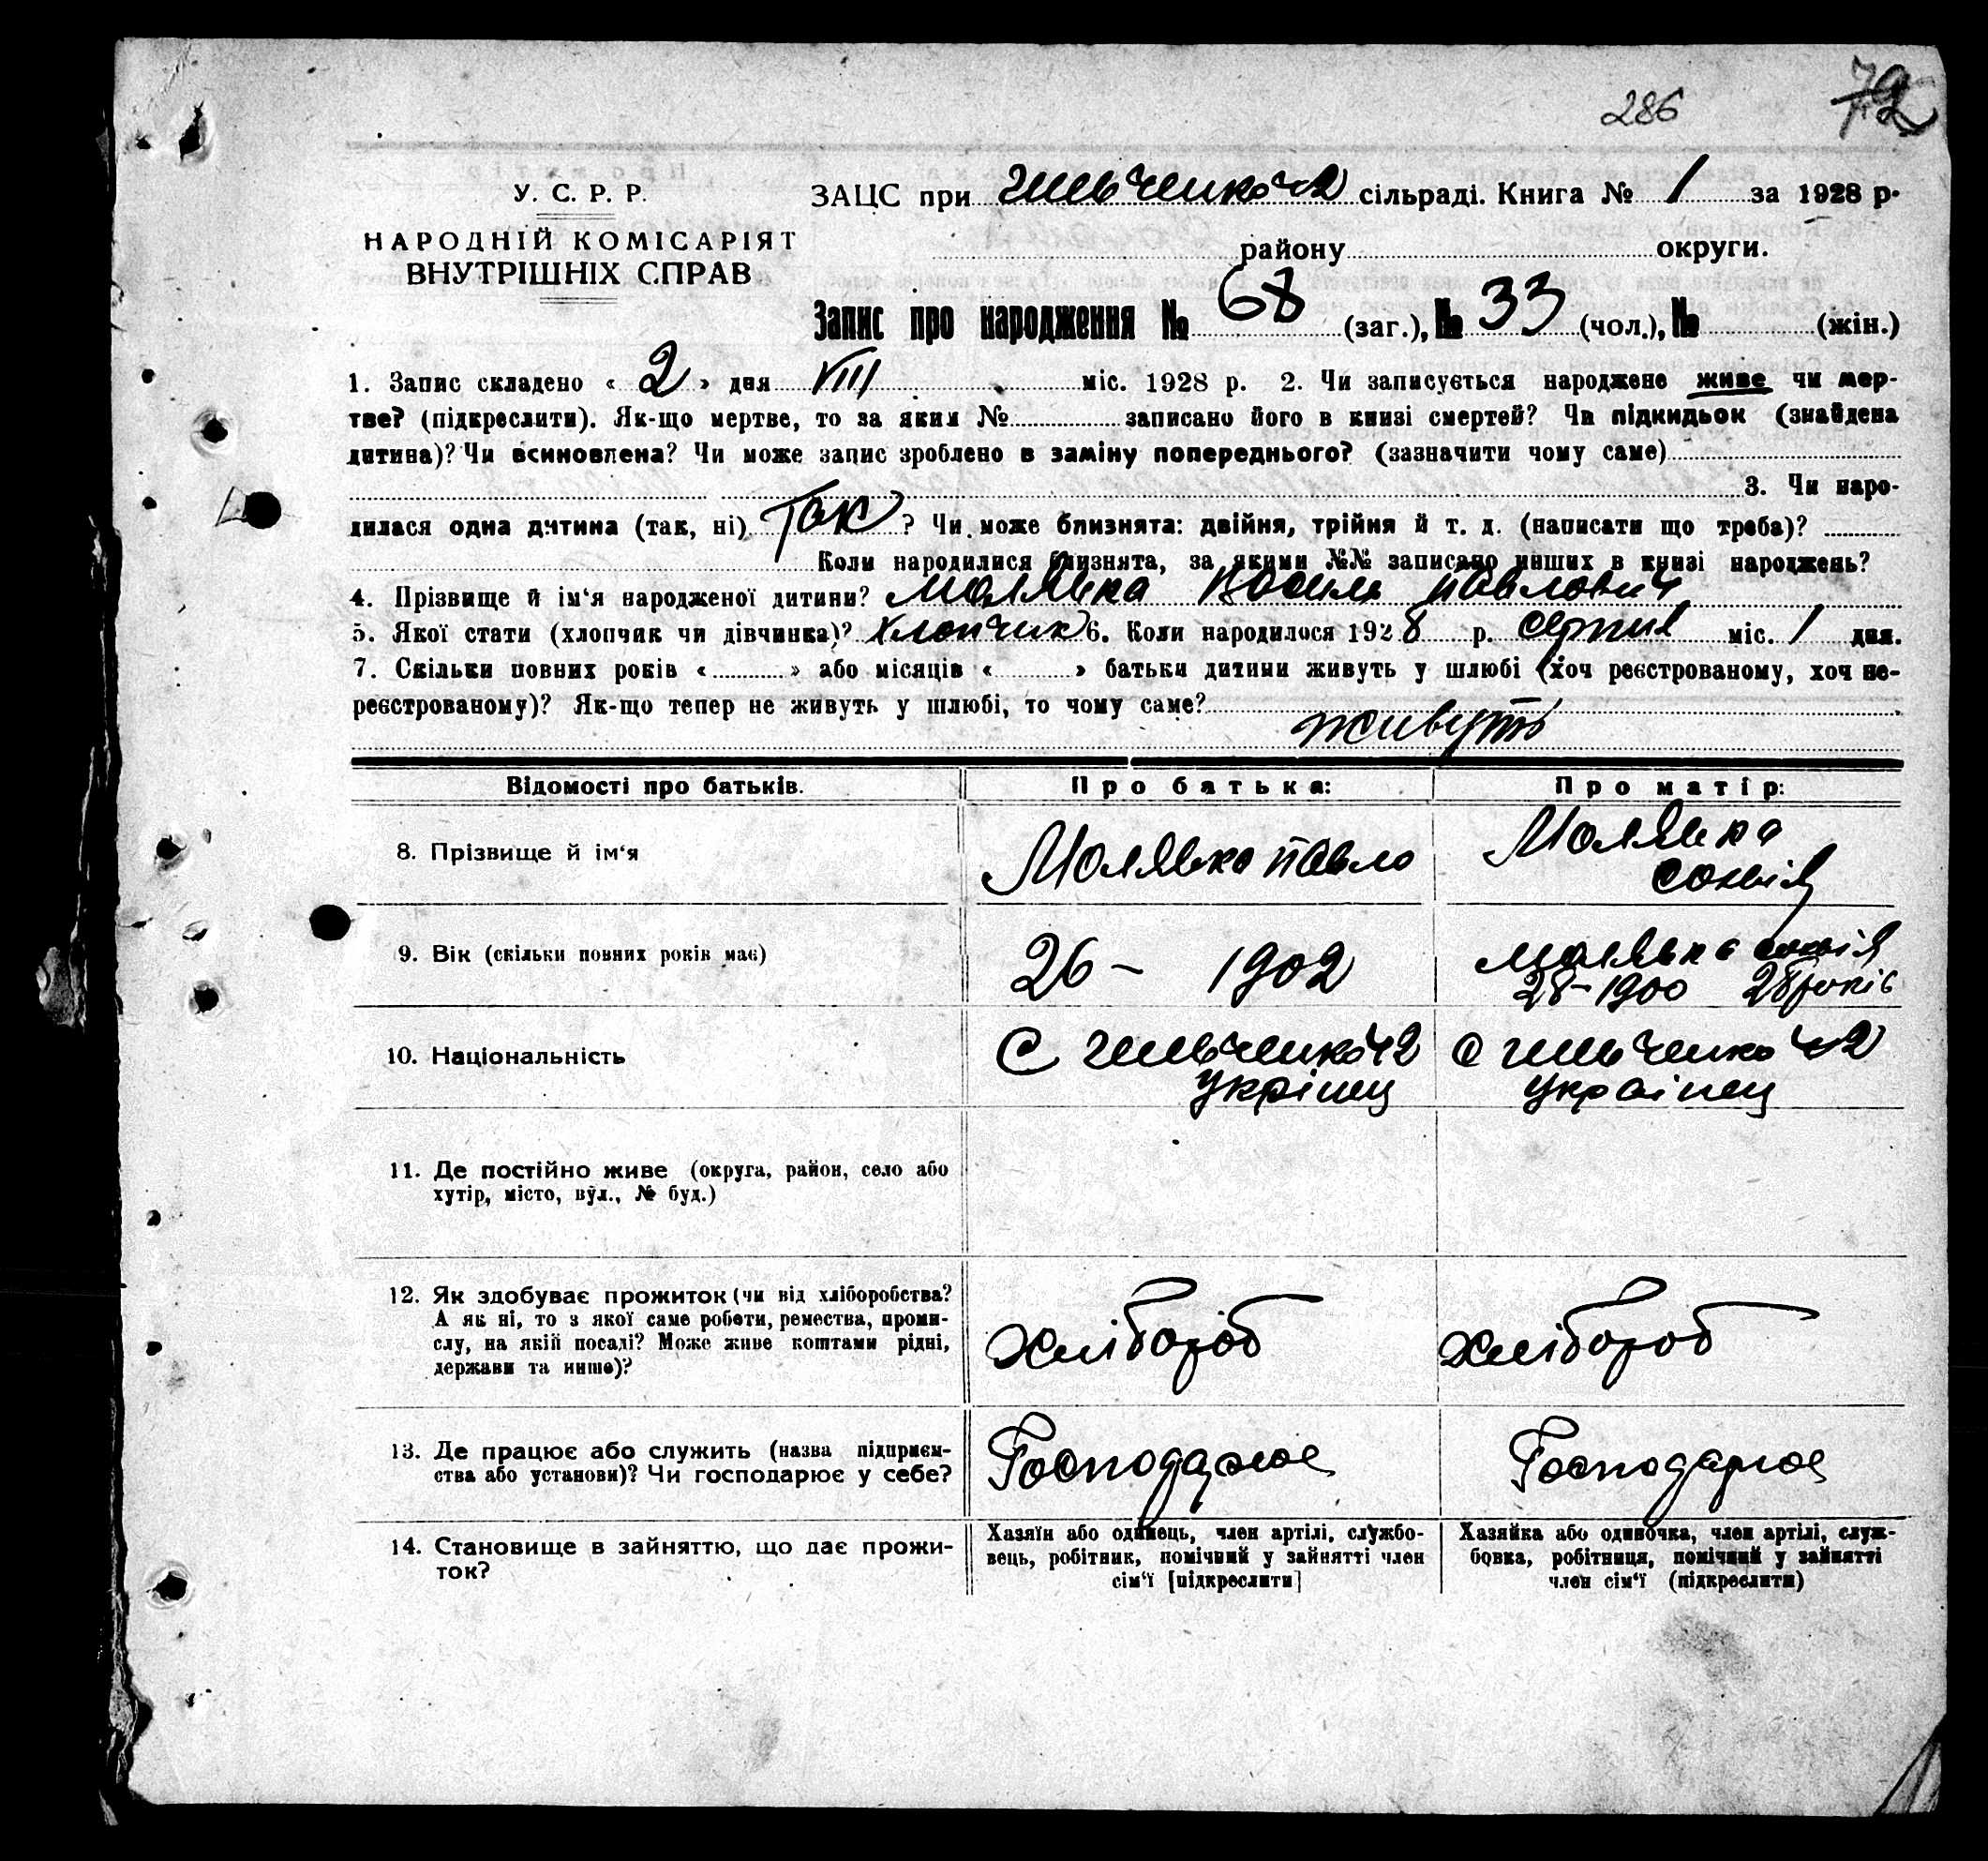 286
72
У. С. Р. Р.
НАРОДНІЙ КОМІСАРІЯТ
ВНУТРІШНІХ СПРАВ
ЗАЦС при сільраді. Книга № 1 за 1928 р.
району округи.
Запис про народження № 68 (заг.), № 33 (чол.), № (жін.)
1. Запис складено « 2 » дня VIII міс. 1928 р. 2. Чи записується народжене живе чи мер-
тве? (підкреслити). Як-що мертве, то за яким № записано його в книзі смертей? Чи підкидьок (знайдена
дитина)? Чи всиновлена? Чи може запис зроблено в заміну попереднього? (зазначити чому саме)
3. Чи наро-
дилася одна дитина (так, ні) Так ? Чи може близнята: двійня, трійня й т. д. (написати що треба)?
Коли народилися близнята, за якими №№ записано инших в книзі народжень?
4. Прізвище й ім‘я народженої дитини? Малявка Василь Павлович
5. Якої стати (хлопчик чи дівчинка)? хлопчик 6. Коли народилося 1928 р. серпня міс. 1 дня.
7. Скільки повних років « » або місяців « » батьки дитини живуть у шлюбі (хоч реєстрованому, хоч не-
реєстрованому)? Як-що тепер не живуть у шлюбі, то чому саме?
живуть
Відомості про батьків. Про батька: Про матір:
8. Прізвище й ім‘я Малявка Павло Малявка
Софія
9. Вік (скільки повних років має) 26 – 1902 Малявка Софія
28 – 1900 28 років
10. Національність С С
Украінец
11. Де постійно живе (округа, район, село або
хутір, місто, вул., № буд.)
12. Як здобуває прожиток (чи від хліборобства?
А як ні, то з якої саме роботи, ремества, проми-
слу, на якій посаді? Може живе коштами рідні,
держави та инше)?
Хлібороб Хлібороб
13. Де працює або служить (назва підприєм-
ства або установи)? Чи господарює у себе?
Господарює Господарює
14. Становище в зайняттю, що дає прожи-
ток?
Хазяїн або одинець, член артілі, службо-
вець, робітник, помічний у зайнятті член
сім‘ї [підкреслити]
Хазяйка або одиночка, член артілі, служ-
бовка, робітниця, помічний у зайнятті
член сім‘ї (підкреслити)